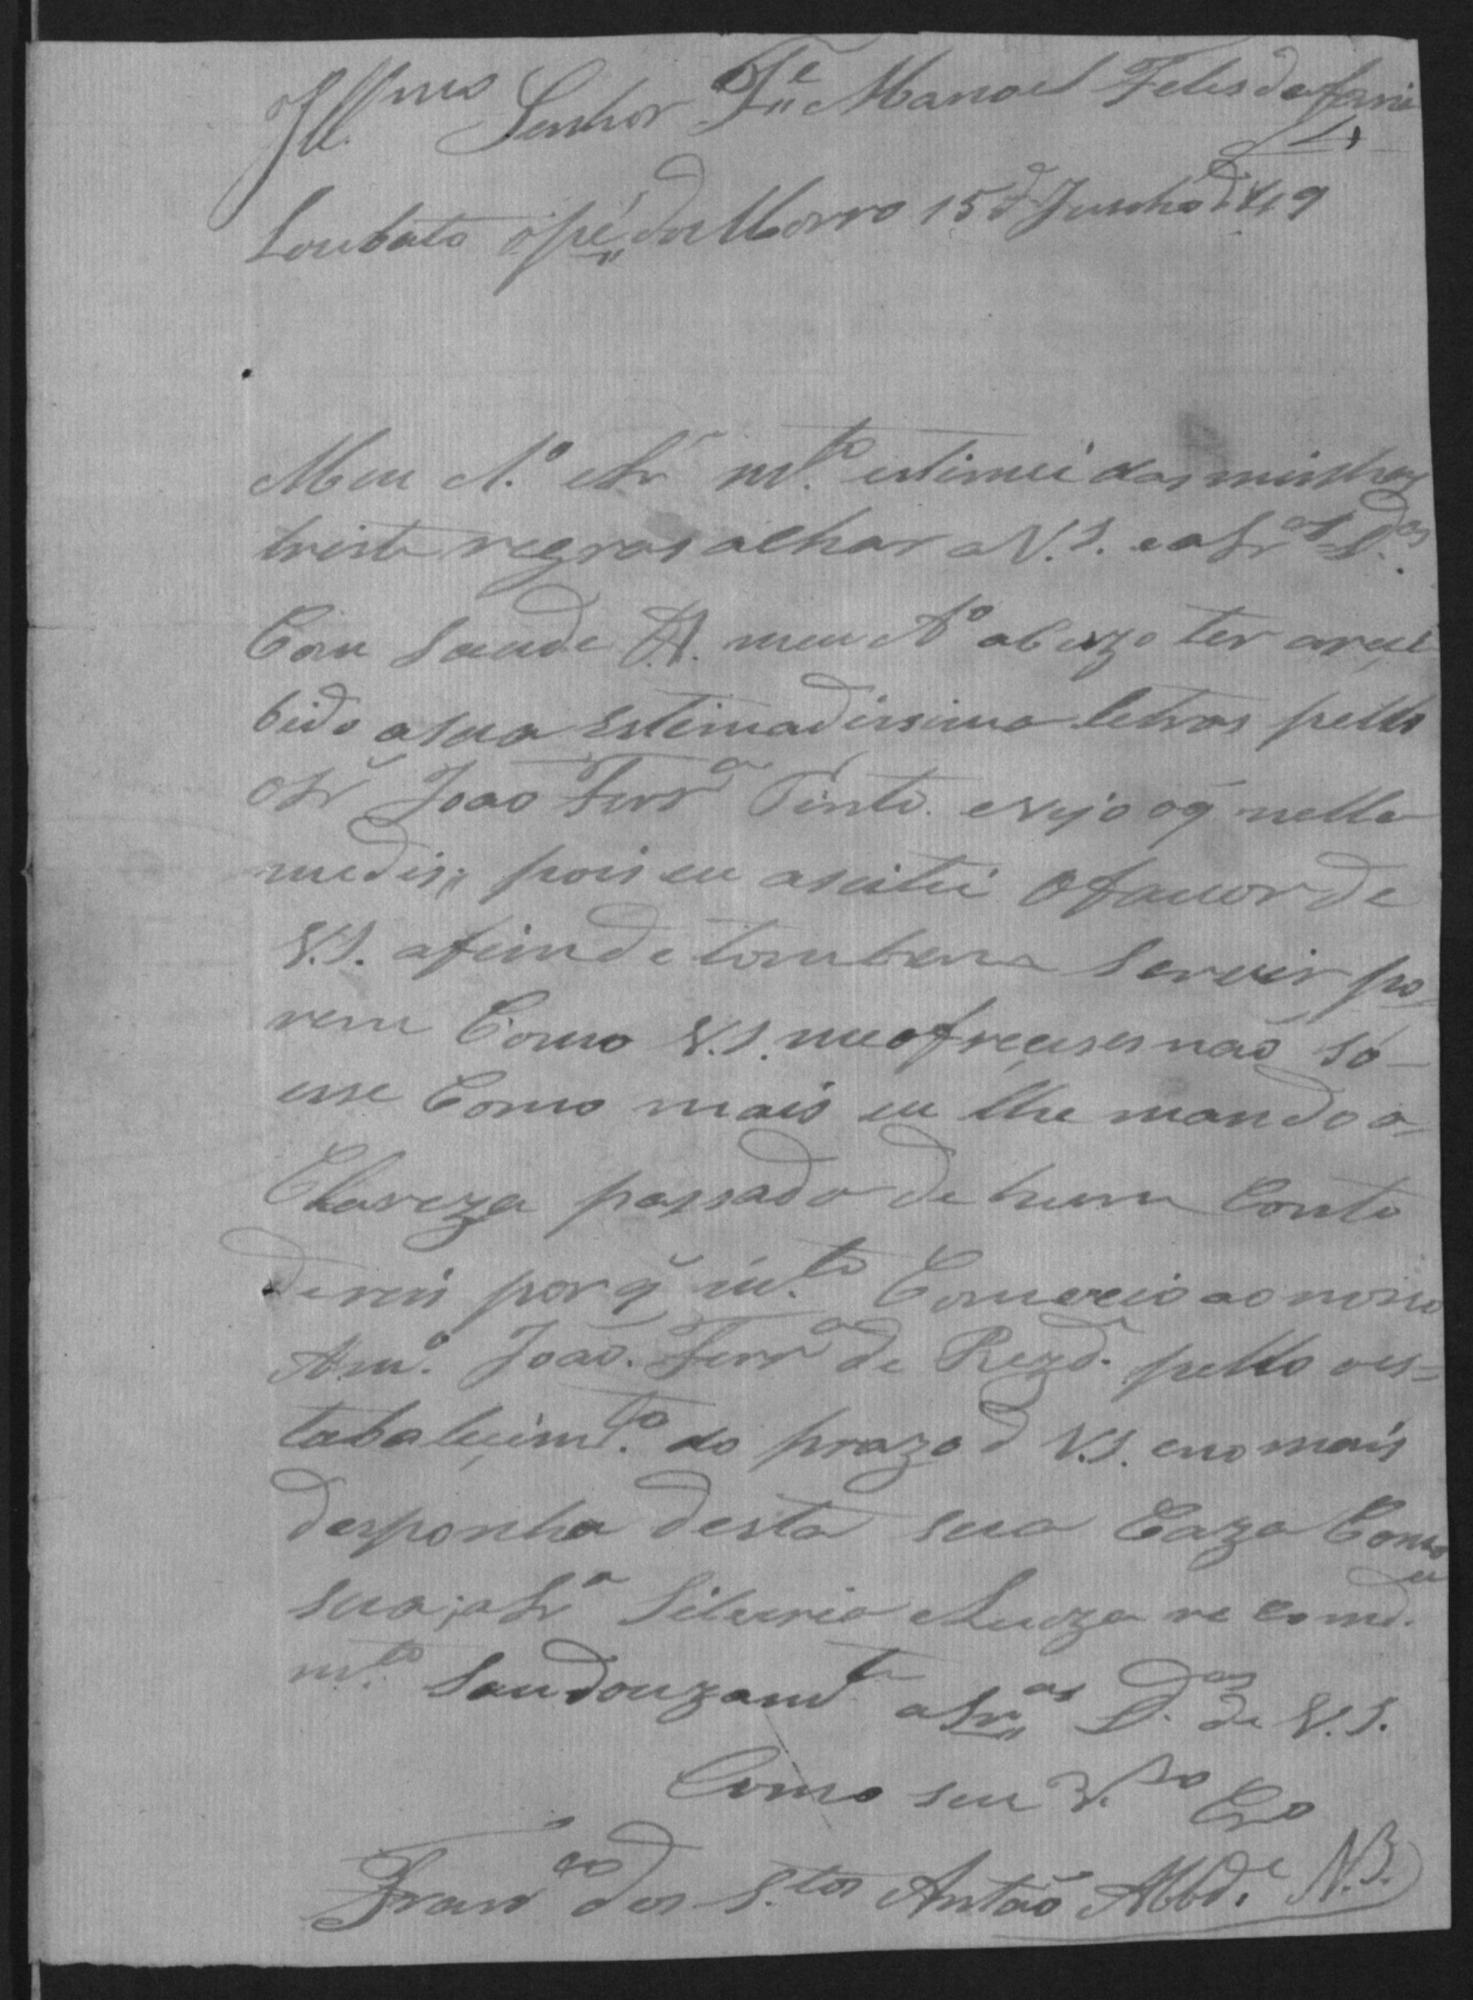 Ill.mo Senhor T.e Manoel Felis da Faria
Loubato o pé do Morro 15 d Junho d 1849
Meu A.º e Sr m.to estimei das minhas
triste regras alhar a V.S. e a Sr.as D.as
Com Saude A. meu A.º abuzo ter a reçe
bido a sua Estimadissima letras pello
o Sr João Ferr.a Pinto. e vejo o q̃ nella
me dis; pois eu aseitei o favor de
V.S. afim de tombem Servir po-
rem Como V.S. me ofreçeses não só
esse Como mais eu lhe mando a
Clareza passado de hum Conto
de reis por q̃ m.to Conveio ao nosso
Am.º João Ferr.a de Rezd.e pello o es-
tabaleçim.to do prazo d V.S. e no mais
desponha desta sua Caza Como
sua; a Sr.a Silveria e Luoza re comd.
m.to Saudouzam.te a Sr.as D.as de V.S.
Como seu V.or C.º
Fran.co dos S.tos Antão Abbd.e N.B.